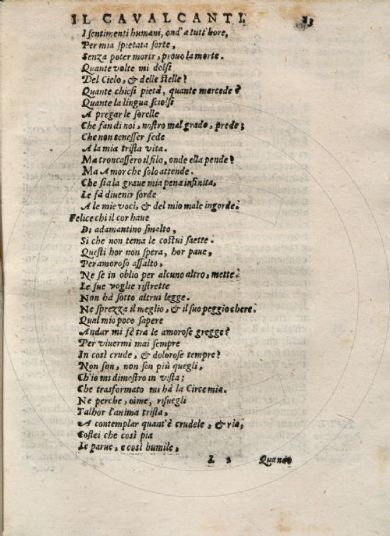 IL CAVALCANTI.
I sentimenti humani, ond'a tutt'hore,
Per mia spietata sorte,
Senza poter morir, prouo la morte.
Quante volte mi dolsi
Del Cielo, & delle stelle?
Quante chiesi pietà, quante mercede?
Quante la lingua sciolsi
A pregar le sorelle
Che fan di noi, nostro mal grado, prede;
Che non tenesser fede
A la mia trista vita.
Ma troncassero il filo, onde ella pende?
Ma Amor che solo attende.
Che sia la graue mia pena infinita,
Le fà diuenir sorde
A le mie voci, & del mio male ingorde.
Felice chi il cor haue
Di adamantino smalto,
Si che non tema le costui saette.
Questi hor non spera, hor paue,
Per amoroso assalto,
Ne se in oblio per alcuno altro, mette.
Le sue voglie ristrette
Non hà sotto altrui legge.
Ne sprezza il meglio, & il suo peggio chere.
Qual mio poco sapere
Andar mi fè tra le amorose gregge?
Per viuermi mai sempre
In così crude, & dolorose tempre?
Non son, non son più quegli,
Ch'io mi dimostro in vista;
Che trasformato mi hà la Circe mia.
Ne perche, oime, risuegli
Talhor l'anima trista,
A contemplar quant'è crudele, & ria,
Costei che così pia
Le parue, e così humile,
Quando